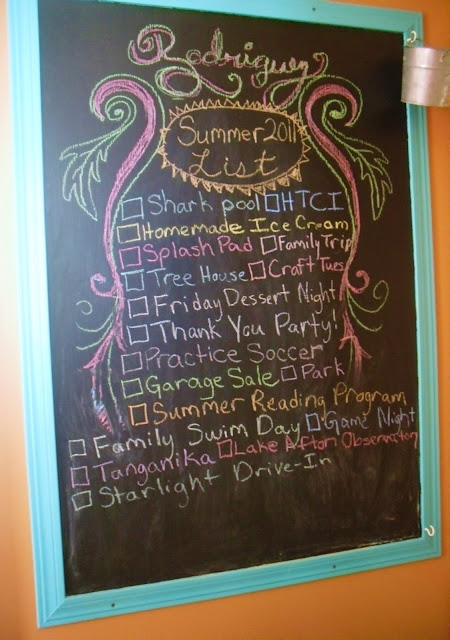 Rodriguez
Summer 2011
List
Shark pool HTCI
Homemade Ice Cream
Splash Pad Family Trip
Tree House Craft Tues
Friday Dessert Night
Thank You Party!
Practice Soccer
Garage Sale Park
Summer Reading Program
Family Swim Day Game Night
Tanganika Lake Afton Observatory
Starlight Drive-In